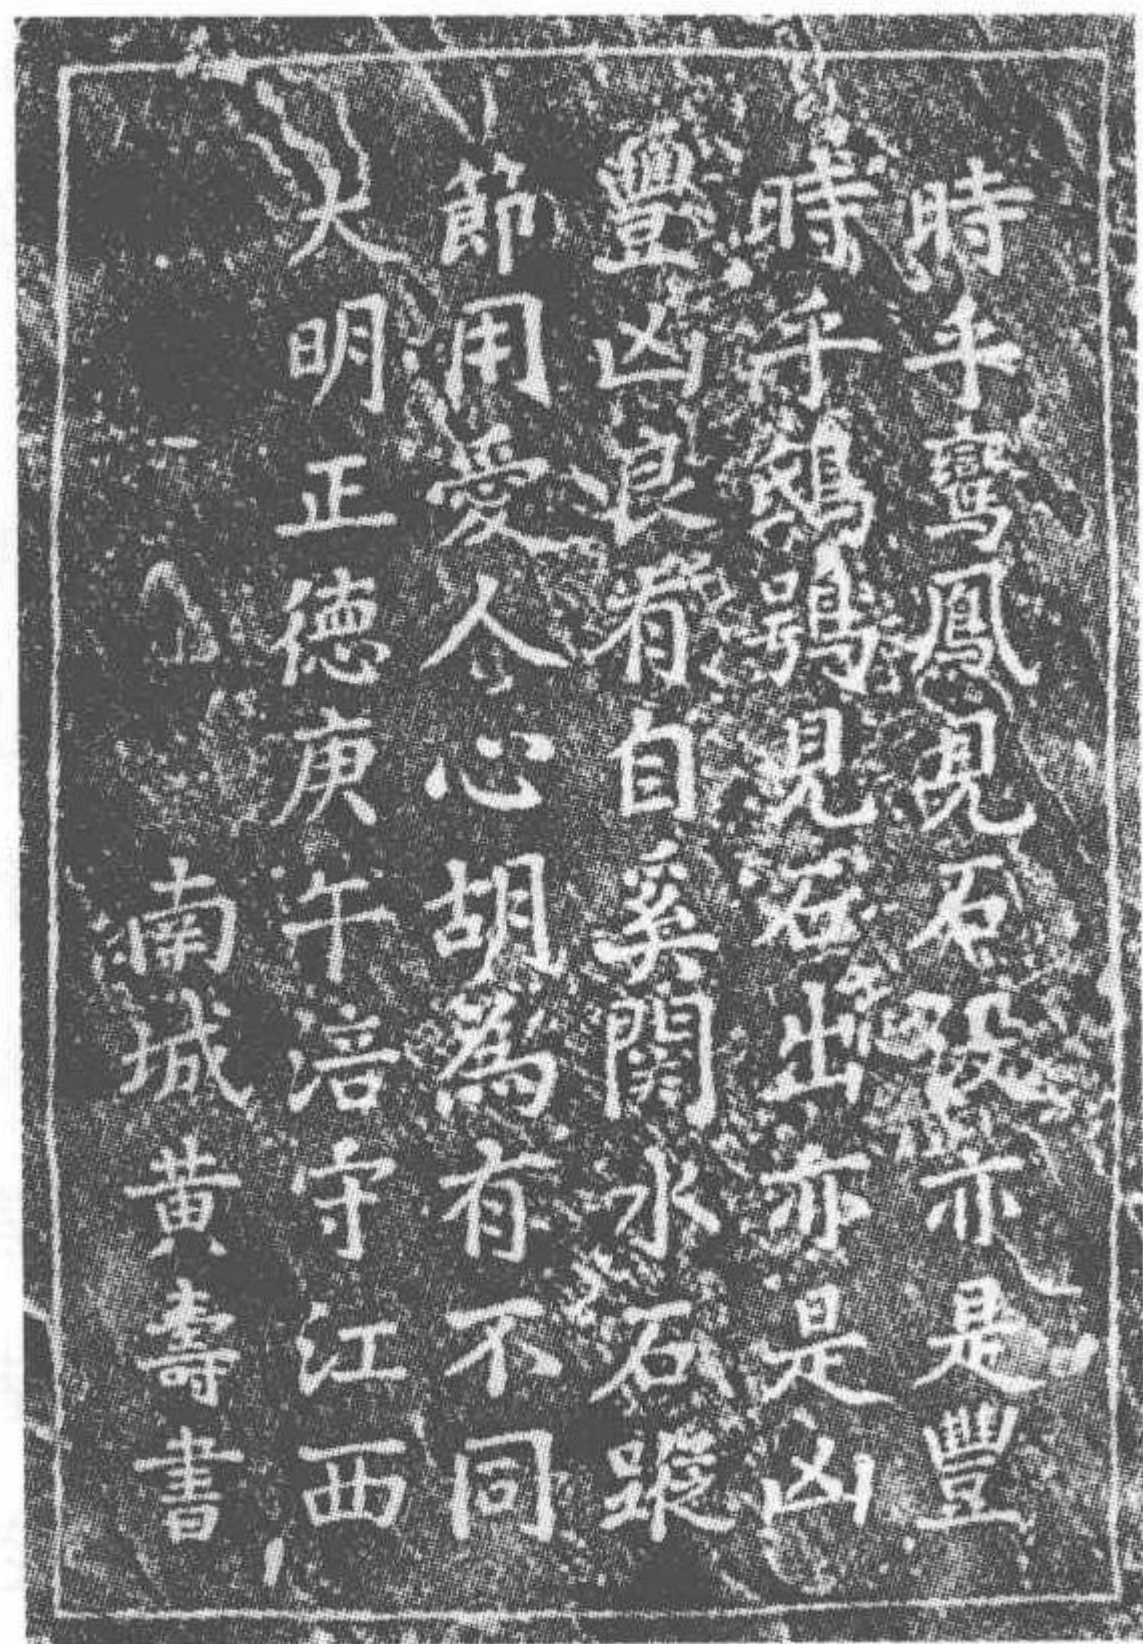 時乎鸞鳳見石没亦是豐
時乎鴟鴞見石出亦是凶
豐凶良有自奚関水石蹤
節用愛人心胡為有不同
大明正徳庚午涪守江西
南城黄壽書